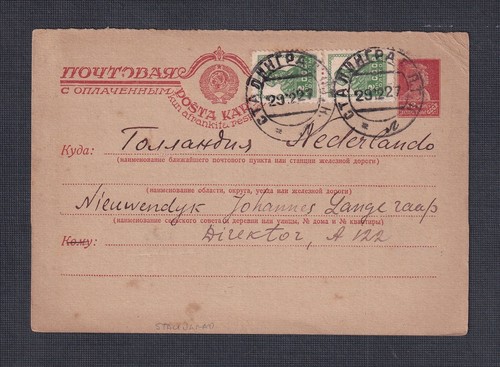 ПОЧТОВАЯ
С ОПЛАЧЕННЫМ
POSTA KAR
kun afrankita resp
СТАЛИНГРАД
29.2.27
СТАЛИНГРАД
29.2.27
Куда: Голландия Nederlando
(наименование ближайшего почтового пункта или станции железной дороги)
(наименование области, округа, уезда или железной дороги)
Nieuwendyk Johannes Langeraap
(наименование сельского совета и деревни или улицы, № дома и № квартиры)
Кому: Direktor, A 122
STALINGRAD